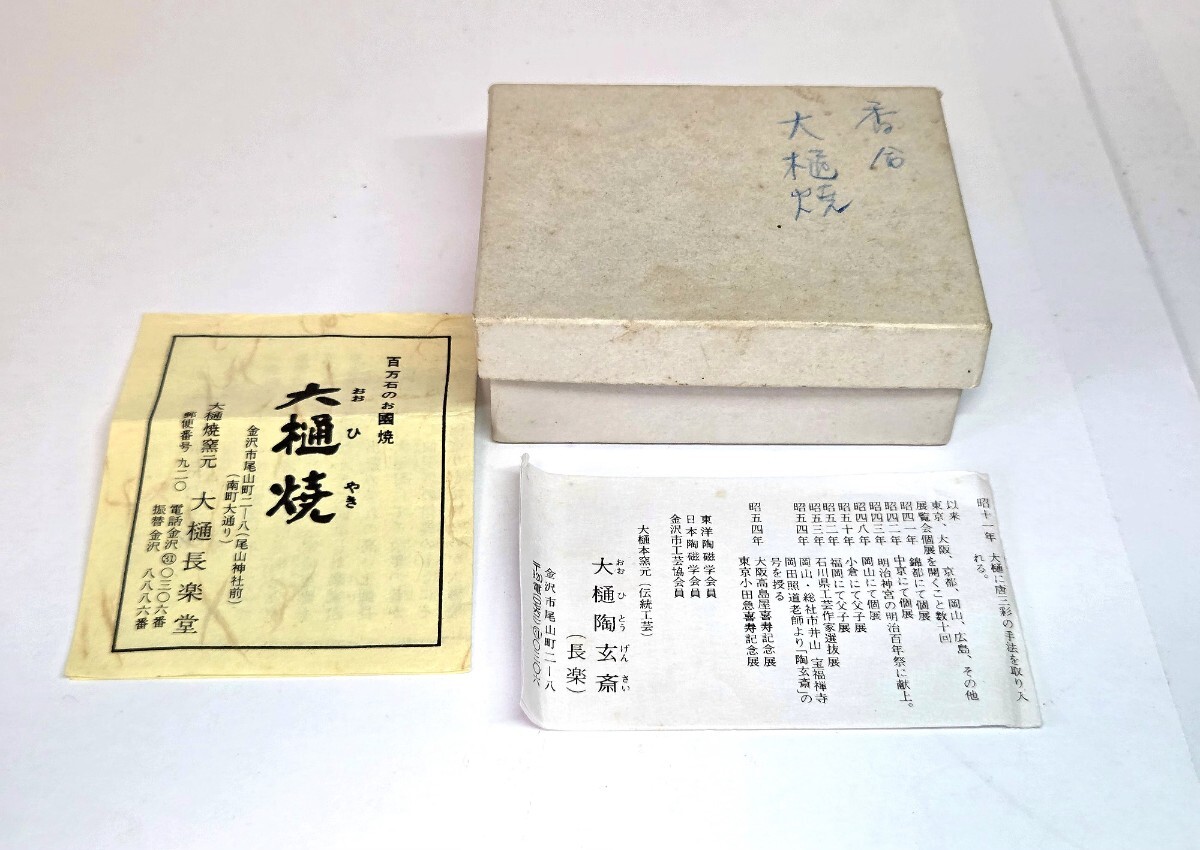 香合
大樋
焼
百万石のお國焼
大樋焼
おお ひ やき
金沢市尾山町二―八(尾山神社前)
(南町大通り)
大樋焼窯元 大樋長楽堂
郵便番号 九二〇
電話金沢㉛〇三〇六番
振替金沢 八八八六番
昭十一年 大樋に唐三彩の手法を取り入
れる。
以来 東京、大阪、京都、岡山、広島、その他
展覧会個展を開くこと数十回
昭四一年 錦都にて個展
昭四二年 中京にて個展
昭四三年 明治神宮の明治百年祭に献上。
昭四八年 岡山にて個展
昭五十年 小倉にて父子展
昭五二年 福岡にて父子展
昭五三年 石川県工芸作家選抜展
昭五四年 岡山・総社市井山 宝福禅寺
岡田照道老師より「陶玄斎」の
号を授る
昭五四年 大阪高島屋喜寿記念展
東京小田急喜寿記念展
東洋陶磁学会員
日本陶磁学会員
金沢市工芸協会員
大樋本窯元(伝統工芸)
おお ひ とう げん さい
大樋陶玄斎
(長楽)
金沢市尾山町二―八